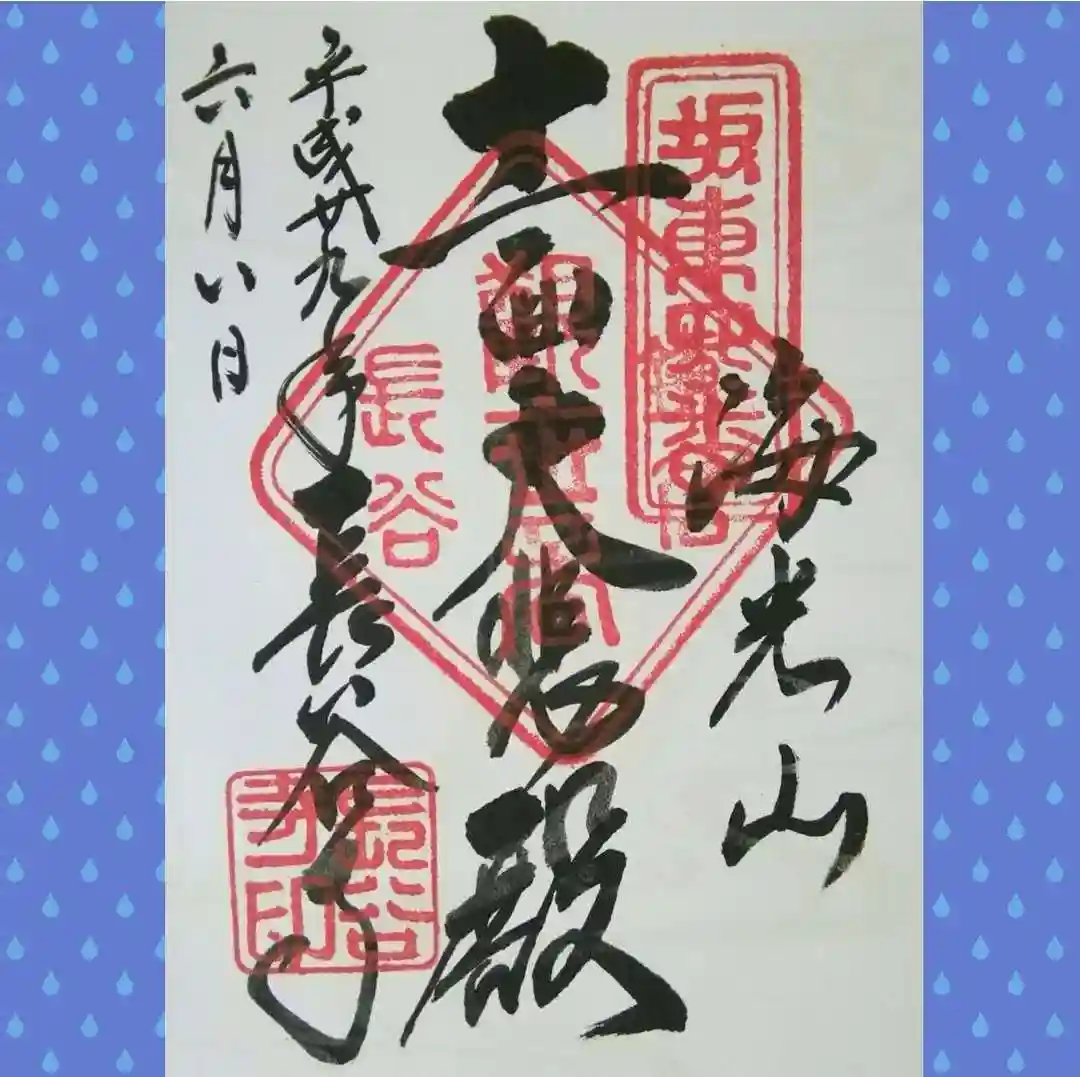 坂東
海光山
十一面大悲殿
長谷
平成廿九年 長谷寺
六月八日
長谷寺印